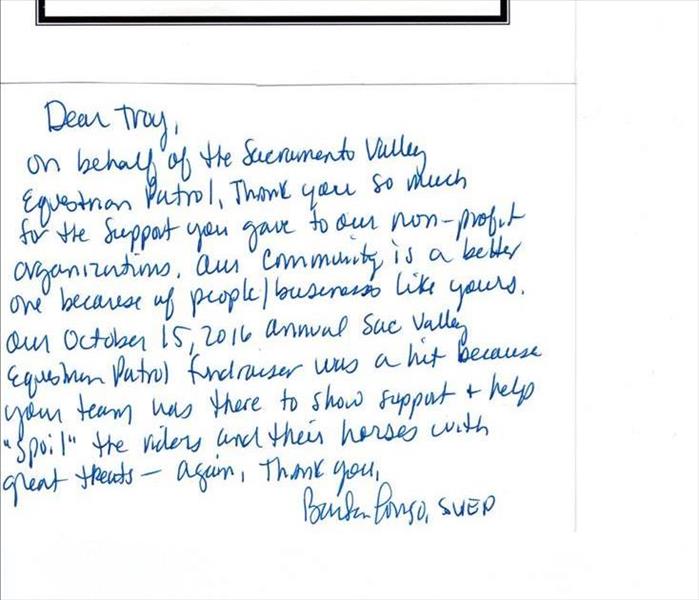 Dear Troy,
on behalf of the Sacramento Valley
Equestrian Patrol, Thank you so much
for the support you gave to our non-profit
organizations. Our community is a better
one because of people/business like yours.
Our October 15, 2016 annual Sac Valley
Equestrian Patrol fundraiser was a hit because
your team was there to show support + help
"spoil" the riders and their horses with
great treats — again, Thank you,
SVEP